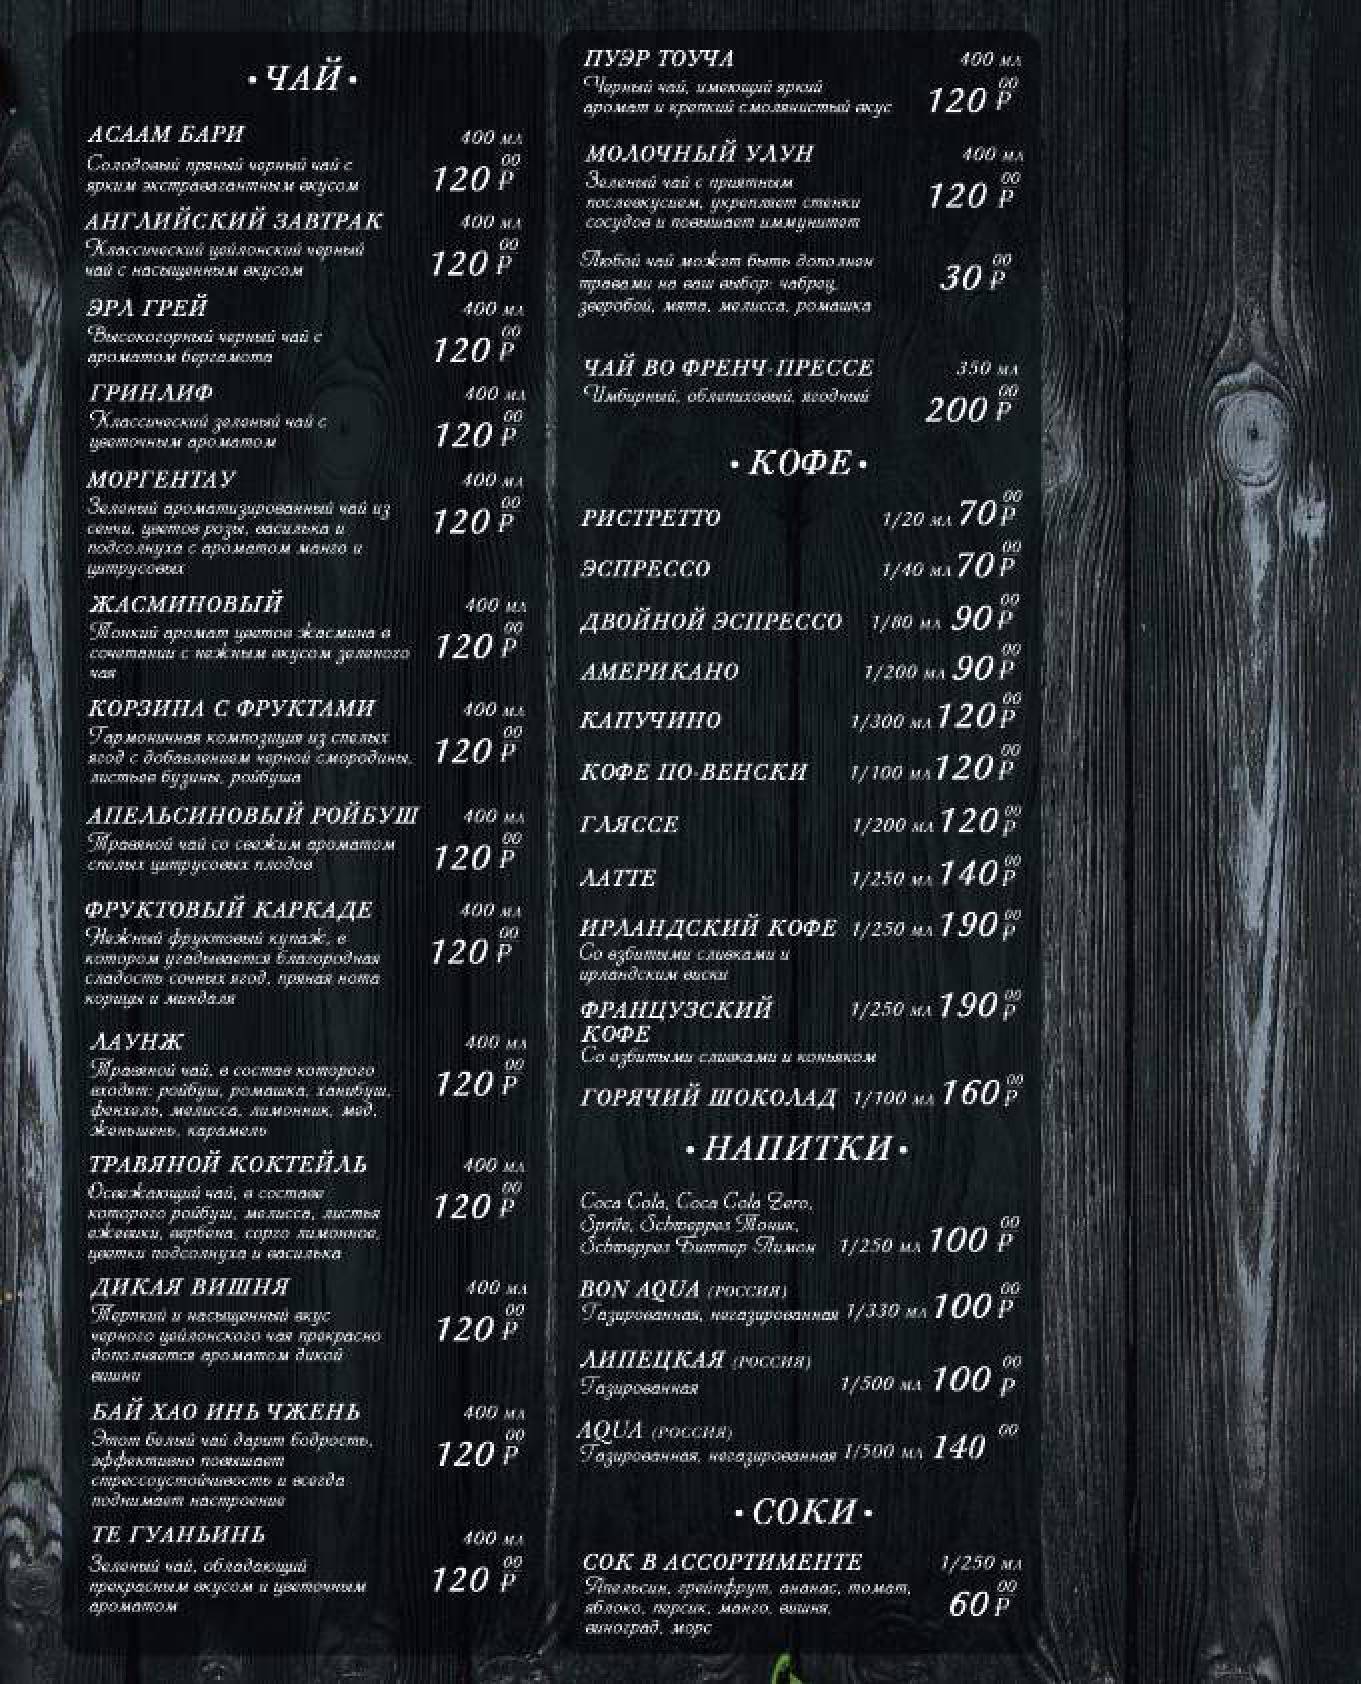 • ЧАЙ •
АСААМ БАРИ 400 мл
Солодовый пряный черный чай с
ярким экстравагантным вкусом 120 00 Р
АНГЛИЙСКИЙ ЗАВТРАК 400 мл
Классический цейлонский черный
чай с насыщенным вкусом 120 00 Р
ЭРЛ ГРЕЙ 400 мл
Высокогорный черный чай с
ароматом бергамота 120 00 Р
ГРИНЛИФ 400 мл
Классический зеленый чай с
цветочным ароматом 120 00 Р
МОРГЕНТАУ 400 мл
Зеленый ароматизированный чай из 120 00 Р
сенчи, цветов розы, василька и
подсолнуха с ароматом манго и
цитрусовых
ЖАСМИНОВЫЙ 400 мл
Тонкий аромат цветов жасмина в
сочетании с нежным вкусом зеленого 120 00 Р
чая
КОРЗИНА С ФРУКТАМИ 400 мл
Гармоничная композиция из спелых
ягод с добавлением черной смородины, 120 00 Р
листьев бузины, ройбуша
АПЕЛЬСИНОВЫЙ РОЙБУШ 400 мл
Травяной чай со свежим ароматом
спелых цитрусовых плодов 120 00 Р
ФРУКТОВЫЙ КАРКАДЕ 400 мл
Нежный фруктовый купаж, в
котором угадывается благородная 120 00 Р
сладость сочных ягод, пряная нота
корицы и миндаля
ЛАУНЖ 400 мл
Травяной чай, в состав которого
входят: ройбуш, ромашка, ханибуш, 120 00 Р
фенхель, мелисса, лимонник, мед,
женьшень, карамель
ТРАВЯНОЙ КОКТЕЙЛЬ 400 мл
Освежающий чай, в составе
которого ройбуш, мелисса, листья 120 00 Р
ежевики, вербена, сорго лимонное,
цветки подсолнуха и василька
ДИКАЯ ВИШНЯ 400 мл
Терпкий и насыщенный вкус
черного цейлонского чая прекрасно 120 00 Р
дополняется ароматом дикой
вишни
БАЙ ХАО ИНЬ ЧЖЕНЬ 400 мл
Этот белый чай дарит бодрость,
эффективно повышает 120 00 Р
стрессоустойчивость и всегда
поднимает настроение
ТЕ ГУАНЬИНЬ 400 мл
Зеленый чай, обладающий
прекрасным вкусом и цветочным 120 00 Р
ароматом
ПУЭР ТОУЧА 400 мл
Черный чай, имеющий яркий
аромат и крепкий смолянистый вкус 120 00 Р
МОЛОЧНЫЙ УЛУН 400 мл
Зеленый чай с приятным
послевкусием, укрепляет стенки 120 00 Р
сосудов и повышает иммунитет
Любой чай может быть дополнен
травами на ваш выбор: чабрец, 30 00 Р
зверобой, мята, мелисса, ромашка
ЧАЙ ВО ФРЕНЧ-ПРЕССЕ 350 мл
Имбирный, облепиховый, ягодный 200 00 Р
• КОФЕ •
РИСТРЕТТО 1/20 мл 70 00 Р
ЭСПРЕССО 1/40 мл 70 00 Р
ДВОЙНОЙ ЭСПРЕССО 1/80 мл 90 00 Р
АМЕРИКАНО 1/200 мл 90 00 Р
КАПУЧИНО 1/300 мл 120 00 Р
КОФЕ ПО-ВЕНСКИ 1/100 мл 120 00 Р
ГЛЯССЕ 1/200 мл 120 00 Р
ЛАТТЕ 1/250 мл 140 00 Р
ИРЛАНДСКИЙ КОФЕ 1/250 мл 190 00 Р
Со взбитыми сливками и
ирландским виски
ФРАНЦУЗСКИЙ 1/250 мл 190 00 Р
КОФЕ
Со взбитыми сливками и коньяком
ГОРЯЧИЙ ШОКОЛАД 1/100 мл 160 00 Р
• НАПИТКИ •
Coca Cola, Coca Cola Zero,
Sprite, Schweppes Тоник,
Schweppes Биттер Лимон 1/250 мл 100 00 Р
BON AQUA (РОССИЯ)
Газированная, негазированная 1/330 мл 100 00 Р
ЛИПЕЦКАЯ (РОССИЯ)
Газированная 1/500 мл 100 00 Р
AQUA (РОССИЯ)
Газированная, негазированная 1/500 мл 140 00
• СОКИ •
СОК В АССОРТИМЕНТЕ 1/250 мл
Апельсин, грейпфрут, ананас, томат,
яблоко, персик, манго, вишня, 60 00 Р
виноград, морс